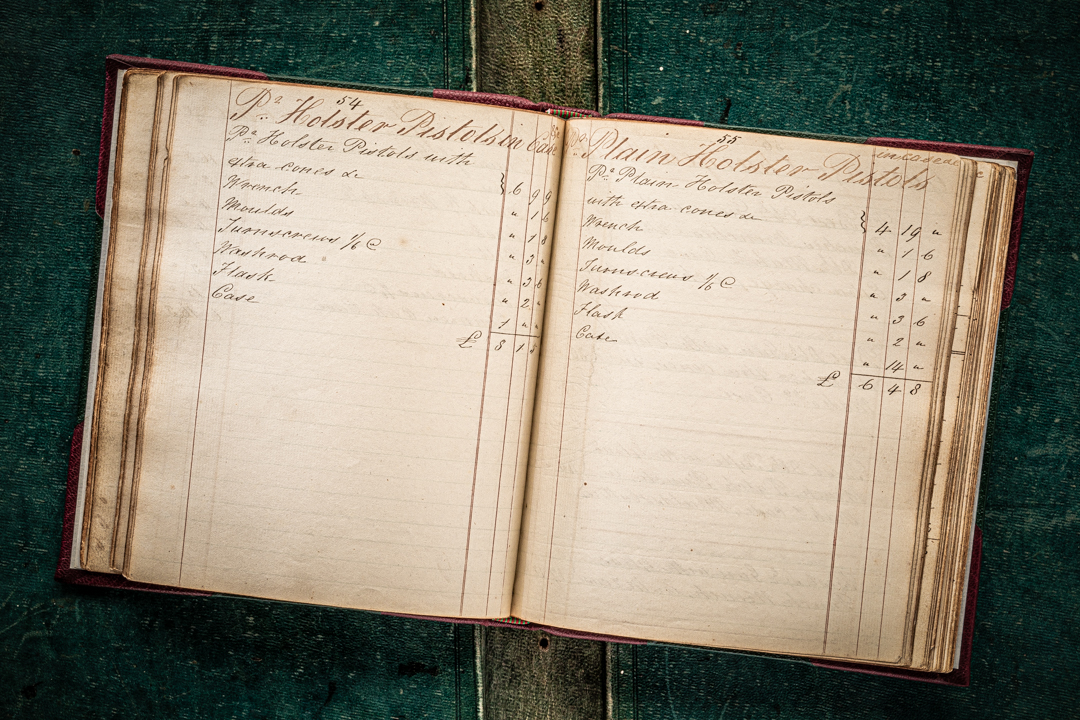 54
Pr. Holster Pistols in Case
Pr. Holster Pistols with
extra cones &c } 6 9 9
Wrench " 1 6
Moulds " 1 8
Turnscrews 1/6 C " 3 "
Washrod " 3 6
Flask " 2 "
Case 1 " "
£ 8 1 5
55
Pr. Plain Holster Pistols in case &c
Pr. Plain Holster Pistols
with extra cones &c } 4 19 "
Wrench " 1 6
Moulds " 1 8
Turnscrews 1/6 C " 3 "
Washrod " 3 6
Flask " 2 "
Case " 14 "
£ 6 4 8